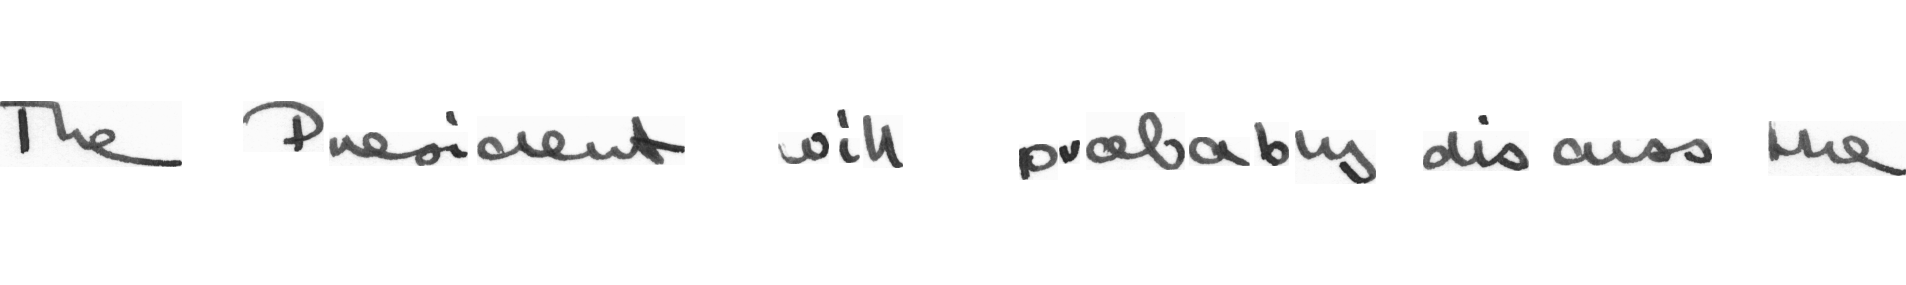 The President will probably discuss the